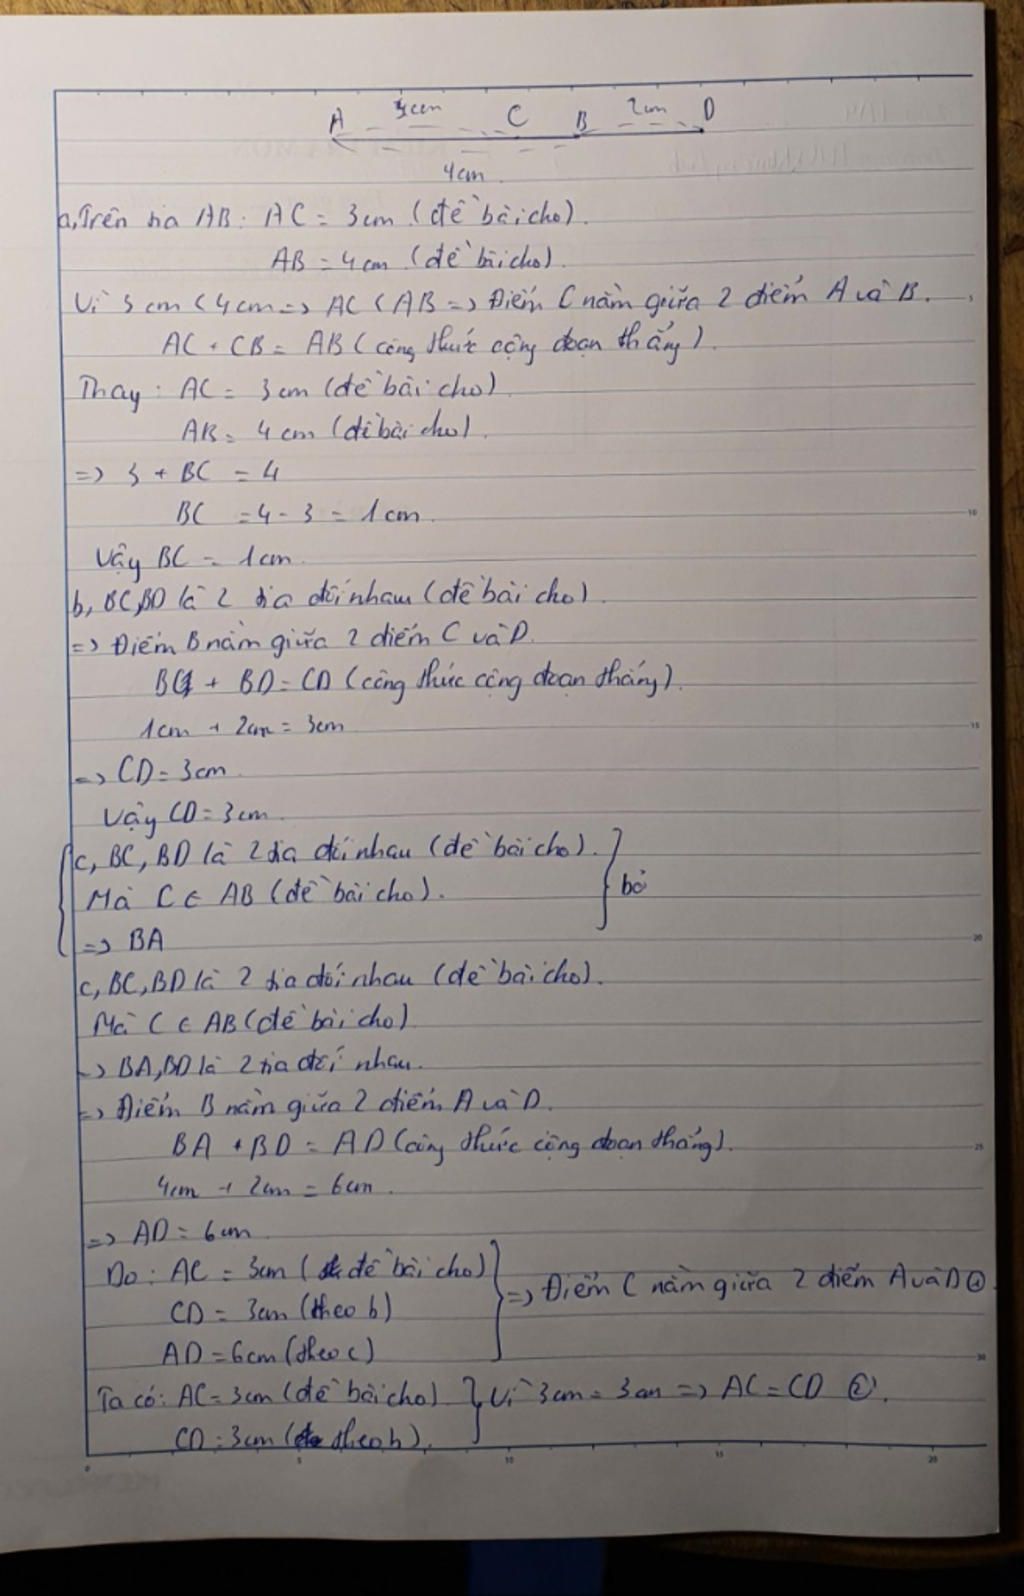 A 3cm C B 2cm D
4cm
a, Trên tia AB: AC = 3cm (đề bài cho).
AB = 4cm (đề bài cho).
Vì 3cm < 4cm => AC < AB => Điểm C nằm giữa 2 điểm A và B.
AC + CB = AB (công thức cộng đoạn thẳng).
Thay: AC = 3cm (đề bài cho)
AB = 4cm (đề bài cho).
=> 3 + BC = 4
BC = 4 - 3 = 1cm.
Vậy BC = 1cm.
b, BC, BD là 2 tia đối nhau (đề bài cho).
=> Điểm B nằm giữa 2 điểm C và D.
BC + BD = CD (công thức cộng đoạn thẳng).
1cm + 2cm = 3cm
=> CD = 3cm.
Vậy CD = 3cm.
c, BC, BD là 2 tia đối nhau (đề bài cho).
Mà C ∈ AB (đề bài cho). bỏ
=> BA
c, BC, BD là 2 tia đối nhau (đề bài cho).
Mà C ∈ AB (đề bài cho)
=> BA, BD là 2 tia đối nhau.
=> Điểm B nằm giữa 2 điểm A và D.
BA + BD = AD (công thức cộng đoạn thẳng).
4cm + 2cm = 6cm.
=> AD = 6cm.
Do: AC = 3cm (đề bài cho)
CD = 3cm (theo b) => Điểm C nằm giữa 2 điểm A và D ①.
AD = 6cm (theo c)
Ta có: AC = 3cm (đề bài cho) Vì 3cm = 3cm => AC = CD ②.
CD = 3cm (theo b).